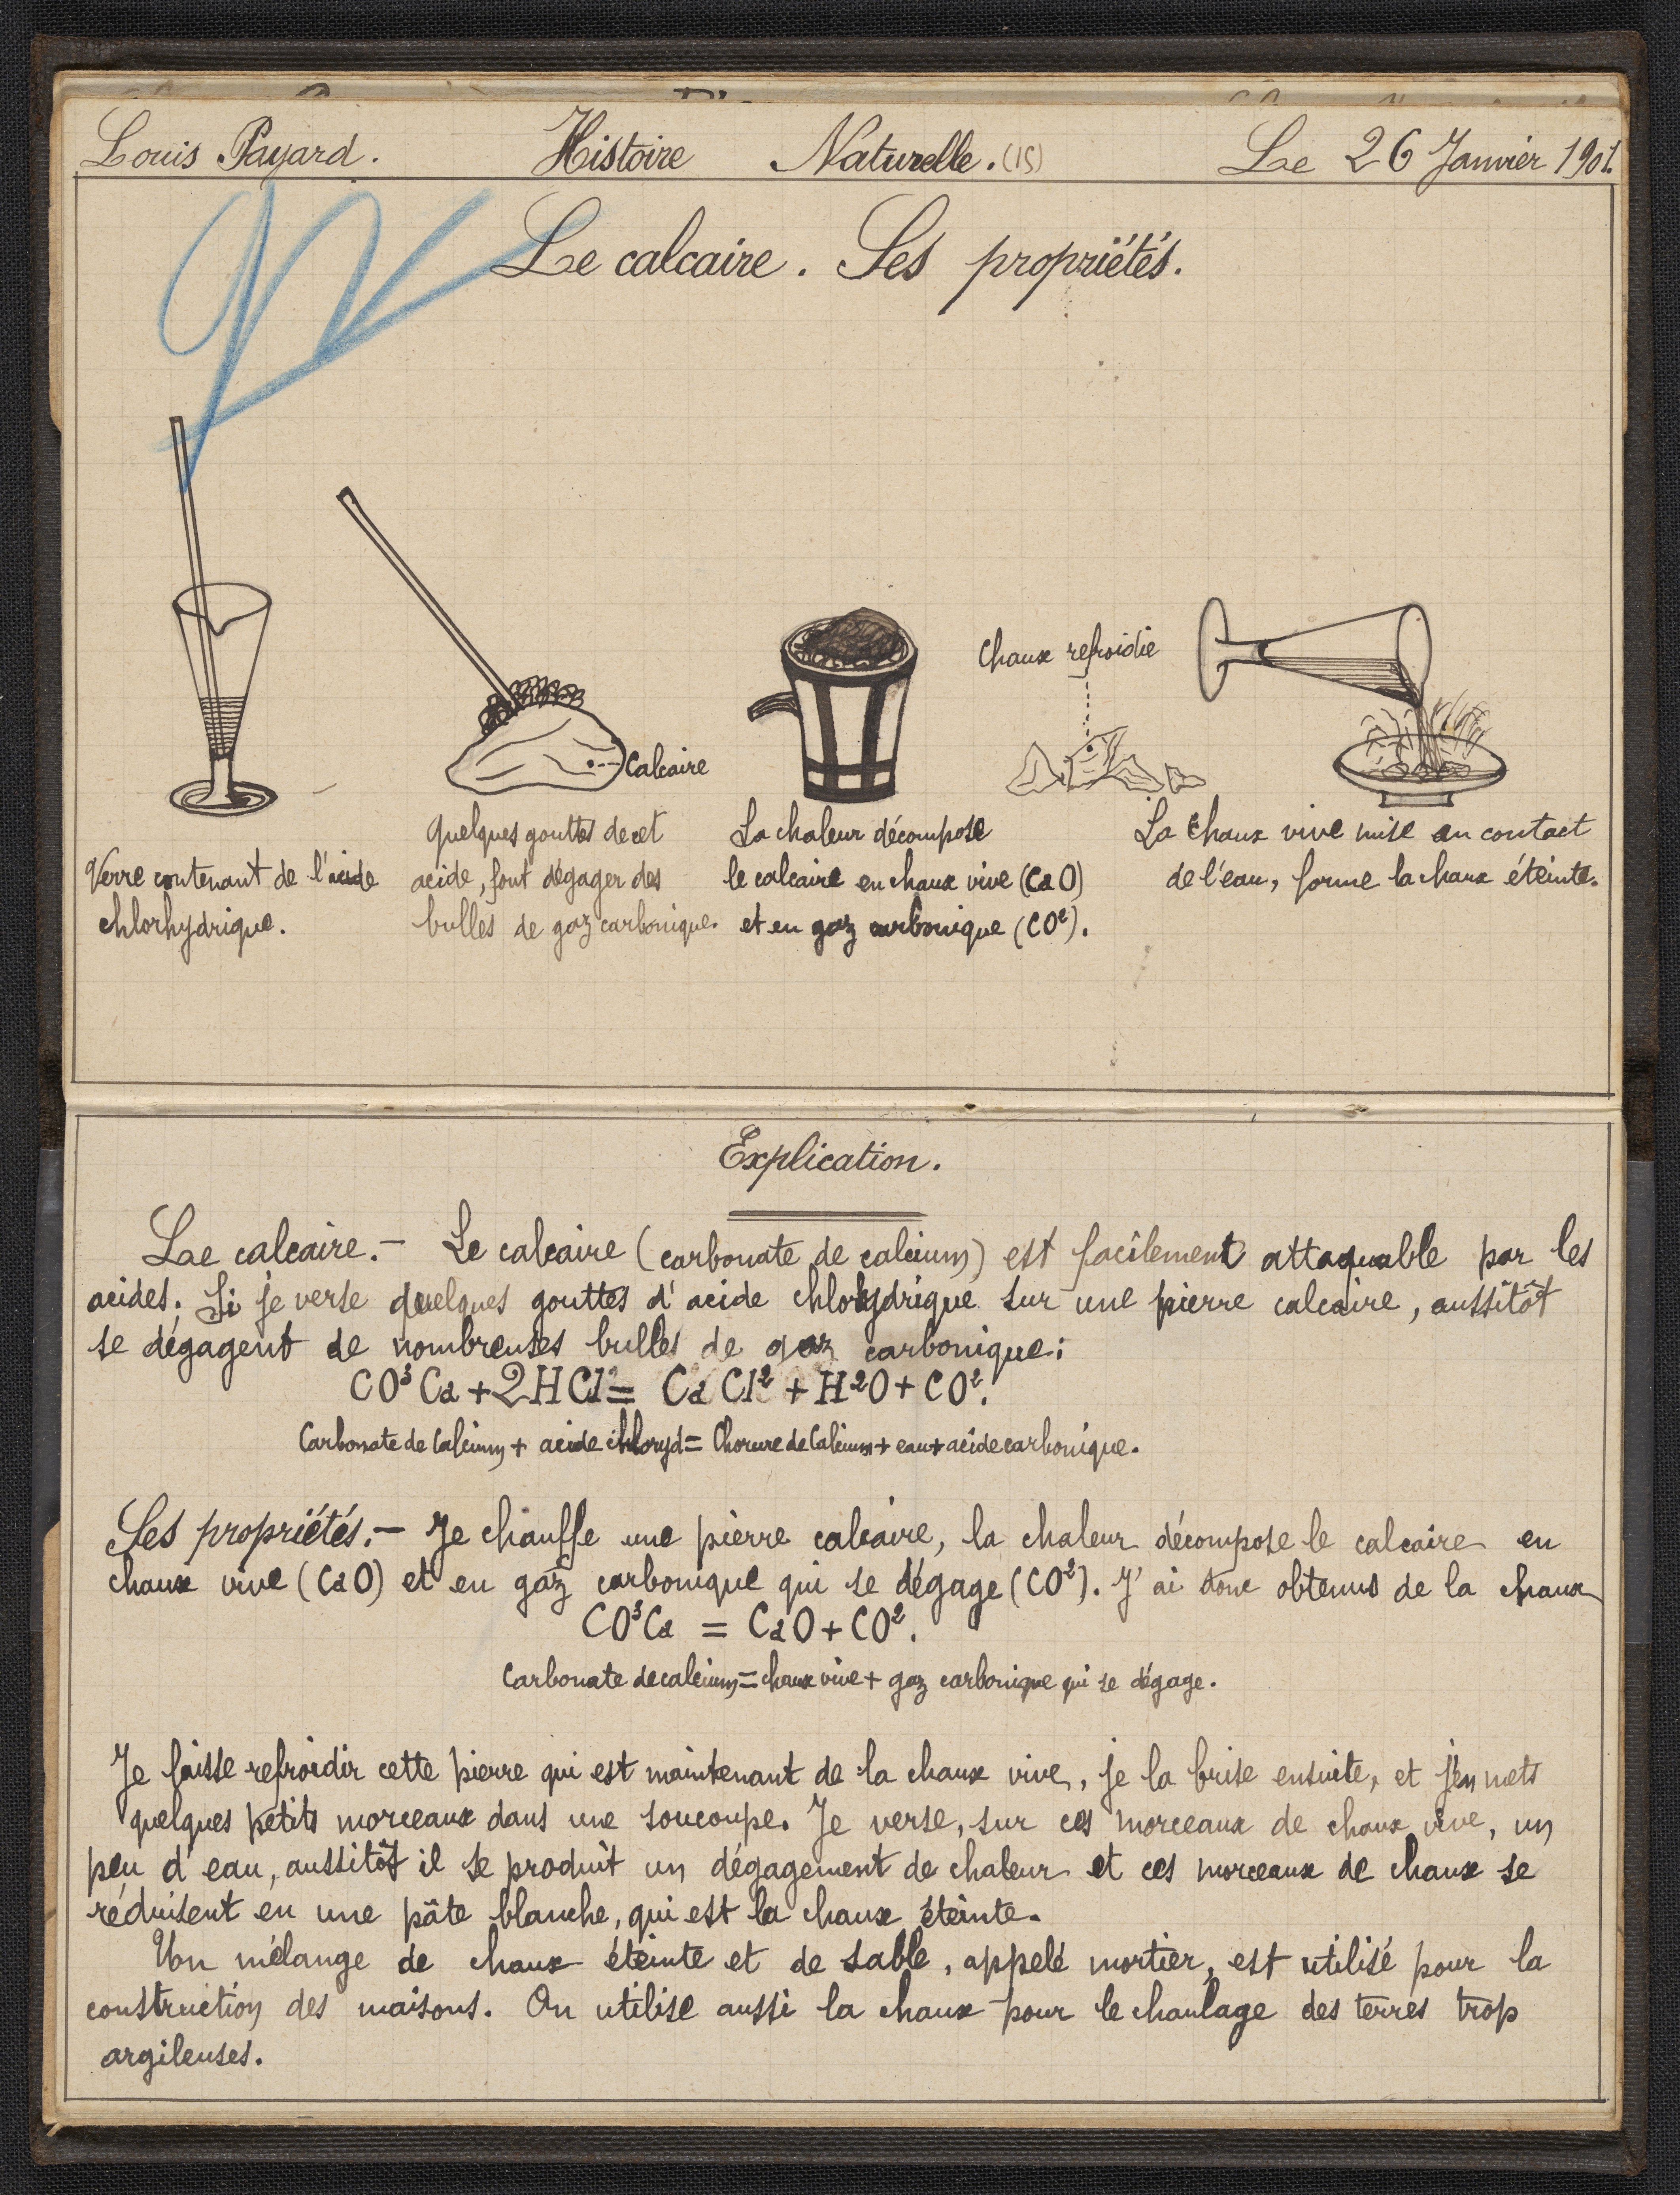 Louis Payard. Histoire Naturelle. (15) Le 26 Janvier 1901.
Le calcaire. Ses propriétés.
Chaux refroidie
Calcaire
Verre contenant de l'acide
chlorhydrique.
Quelques gouttes de cet
acide, font dégager des
bulles de gaz carbonique.
La chaleur décompose
le calcaire en chaux vive (CaO)
et en gaz carbonique (CO²).
La chaux vive mise en contact
de l'eau, forme la chaux éteinte.
Explication.
Le calcaire.- Le calcaire (carbonate de calcium) est facilement attaquable par les
acides. Si je verse quelques gouttes d'acide chlohydrique sur une pierre calcaire, aussitôt
se dégagent de nombreuses bulles de gaz carbonique:
CO³Ca + 2HCl = CaCl² + H²O + CO².
Carbonate de Calcium + acide chloryd = Chorure de Calcium + eau + acide carbonique.
Ses propriétés.- Je chauffe une pierre calcaire, la chaleur décompose le calcaire en
chaux vive (CaO) et en gaz carbonique qui se dégage (CO²). J'ai donc obtenus de la chaux
CO³Ca = CaO + CO².
Carbonate de calcium = chaux vive + gaz carbonique qui se dégage.
Je laisse refroidir cette pierre qui est maintenant de la chaux vive, je la brise ensuite, et j'en mets
quelques petits morceaux dans une soucoupe. Je verse, sur ces morceaux de chaux vive, un
peu d'eau, aussitôt il se produit un dégagement de chaleur et ces morceaux de chaux se
réduisent en une pâte blanche, qui est la chaux éteinte.
Un mélange de chaux éteinte et de sable, appelé mortier, est utilisé pour la
construction des maisons. On utilise aussi la chaux pour le chaulage des terres trop
argileuses.